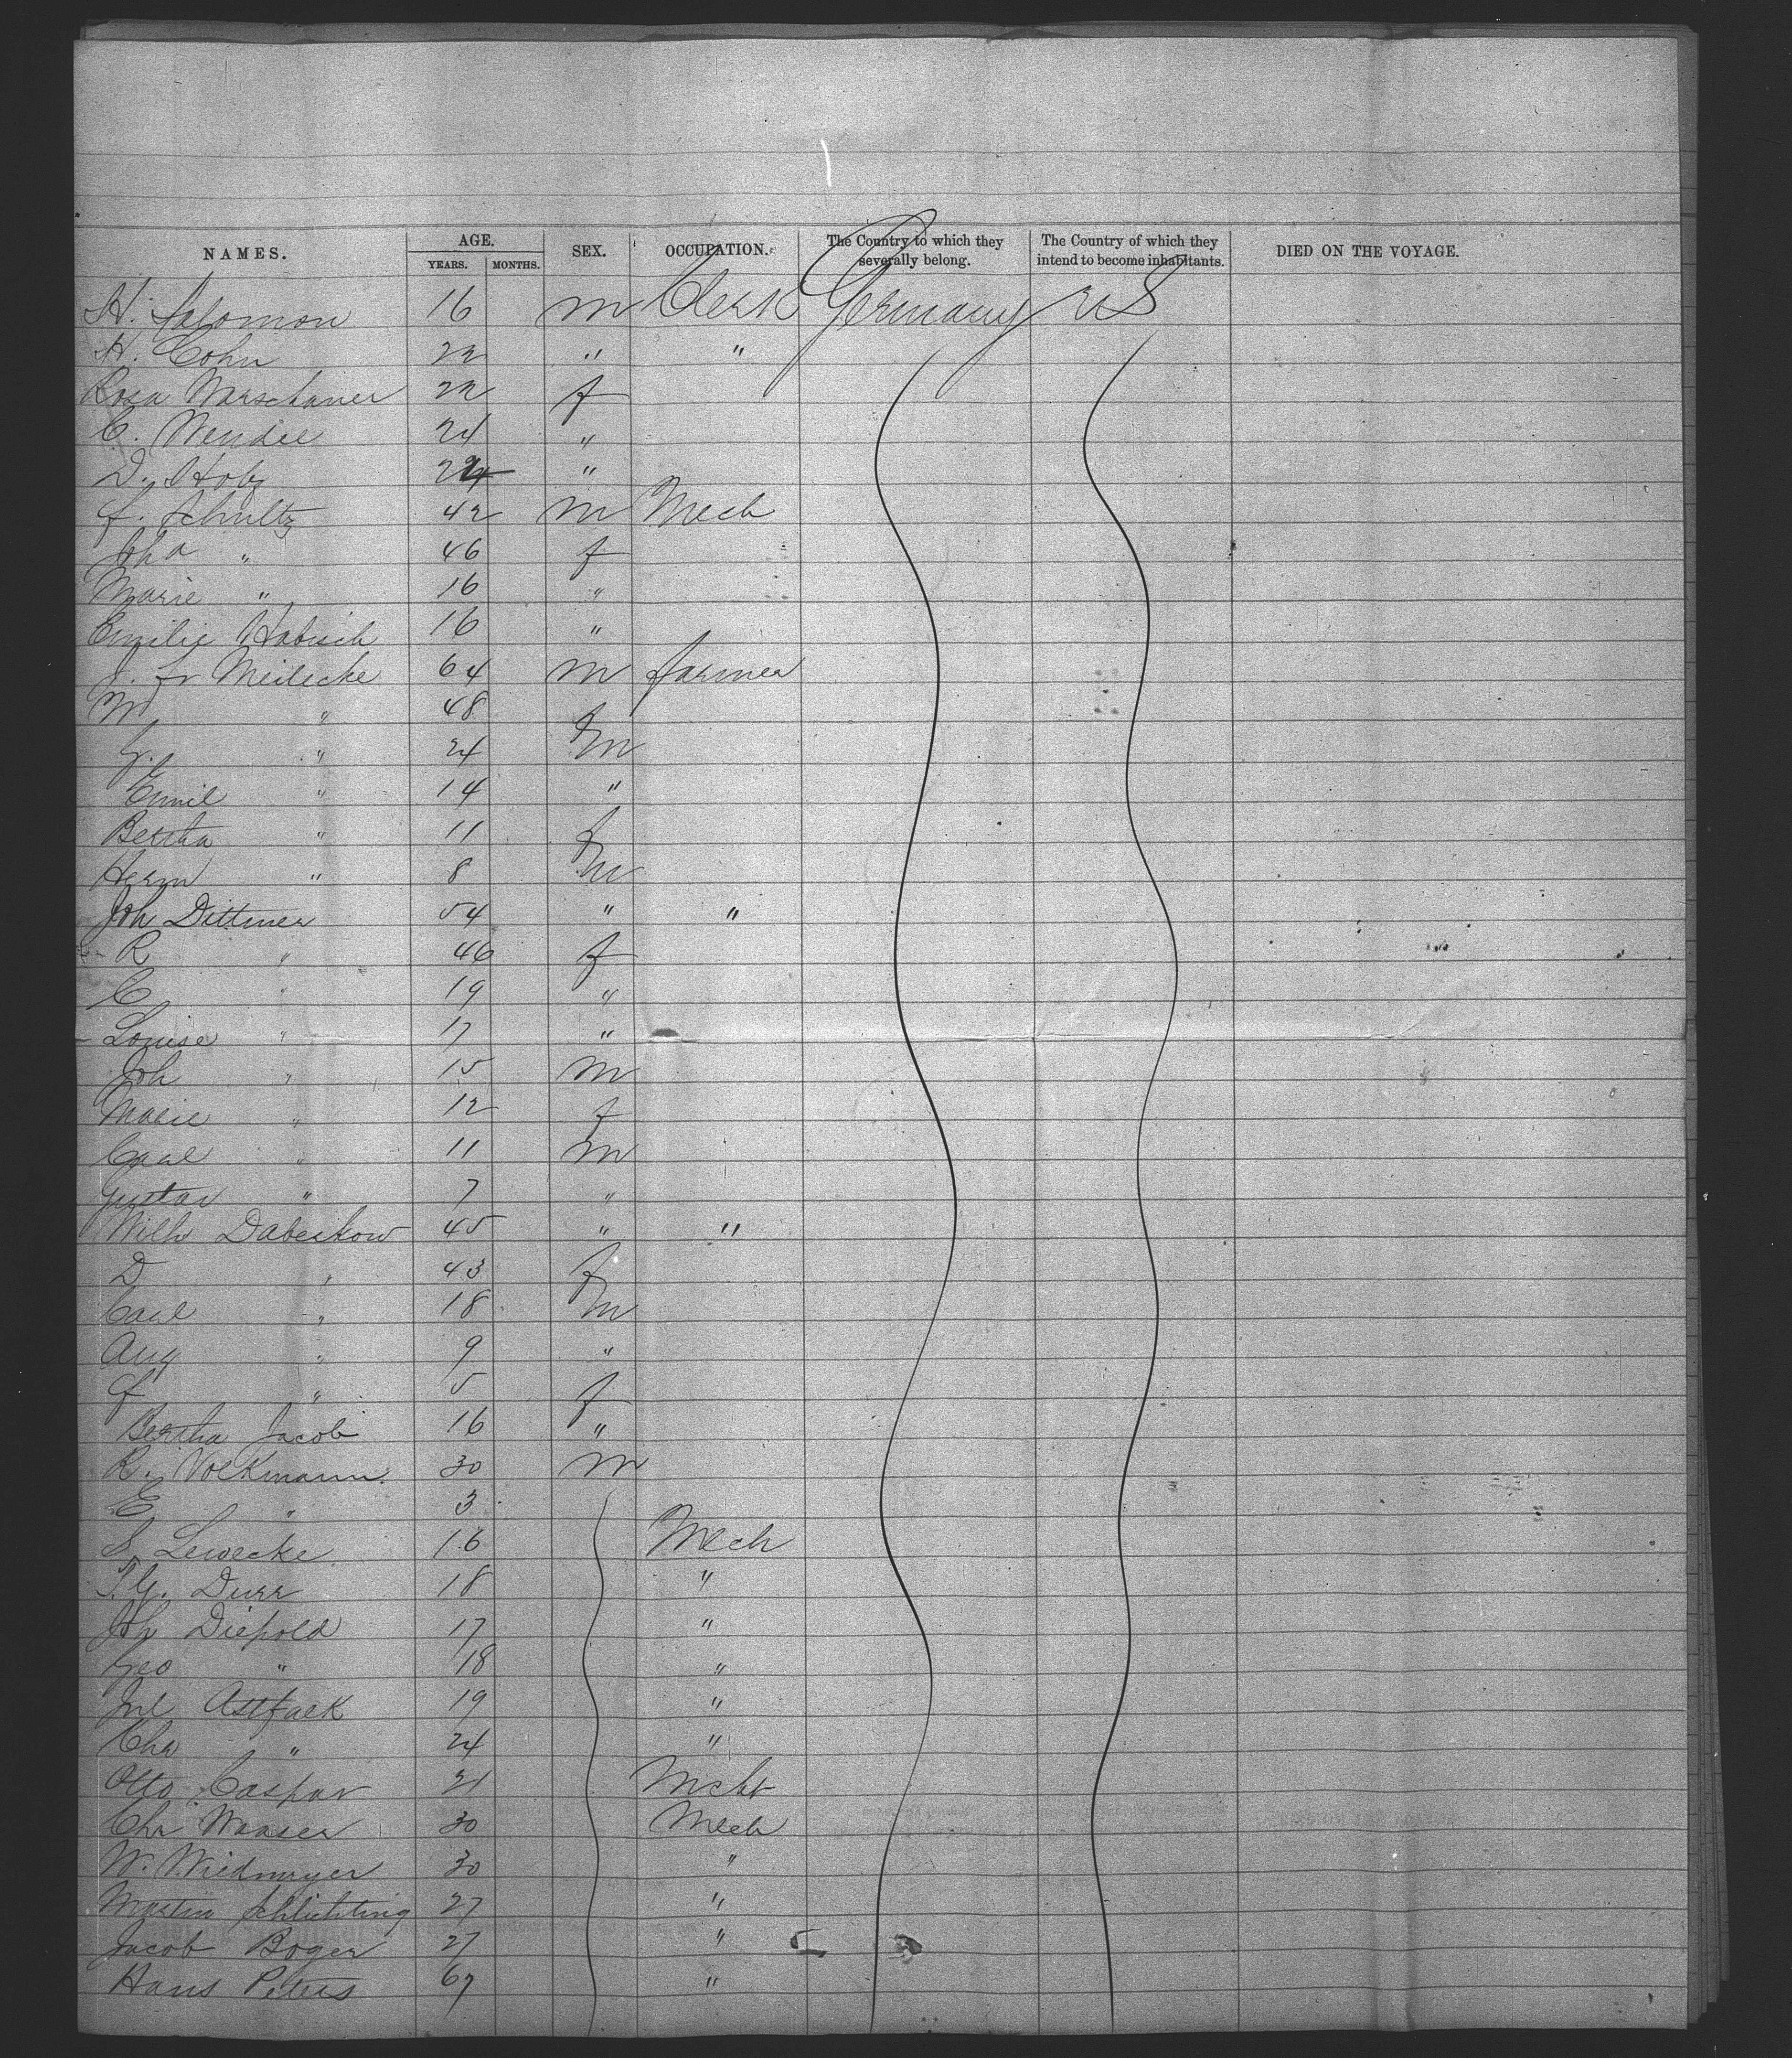 NAMES. AGE. SEX. OCCUPATION. The Country to which they severally belong. The Country of which they intend to become inhabitants. DIED ON THE VOYAGE.
YEARS. MONTHS.
H. Salomon 16 m Clerk Germany US
H. Cohn 22 " "
Rosa Warschauer 22 f
C. Wendel 24 "
D. Holz 24 "
F. Schultz 42 m Mech
Joha " 46 f
Marie " 16 "
Emilie Habisch 16 "
J. Fr Meilecke 64 m farmer
W " 48 f
G. " 24 m
Emil " 14 "
Bertha " 11 f
Herm " 8 m
Joh Dittmer 54 " "
R " 46 f
C " 19 "
Louise " 17 "
Joh " 15 m
Marie " 12 f
Carl " 11 m
Gustav " 7 "
Wilh Daberkow 45 " "
D " 43 f
Carl " 18 m
Aug " 9 "
F " 5 f
Bertha Jacob 16 "
R. Volkmann 30 m
E " 3
S. Lewecke 16 Mech
Durr 18 "
Joh Diepold 17 "
Geo " 18 "
Jul Astfalk 19 "
Chr " 24 "
Otto Caspar 21 Mcht
Chr Waaser 30 Mech
W. Wiedmayer 30 "
Martin Schlichting 27 "
Jacob Boger 27 "
Hans Peters 67 "